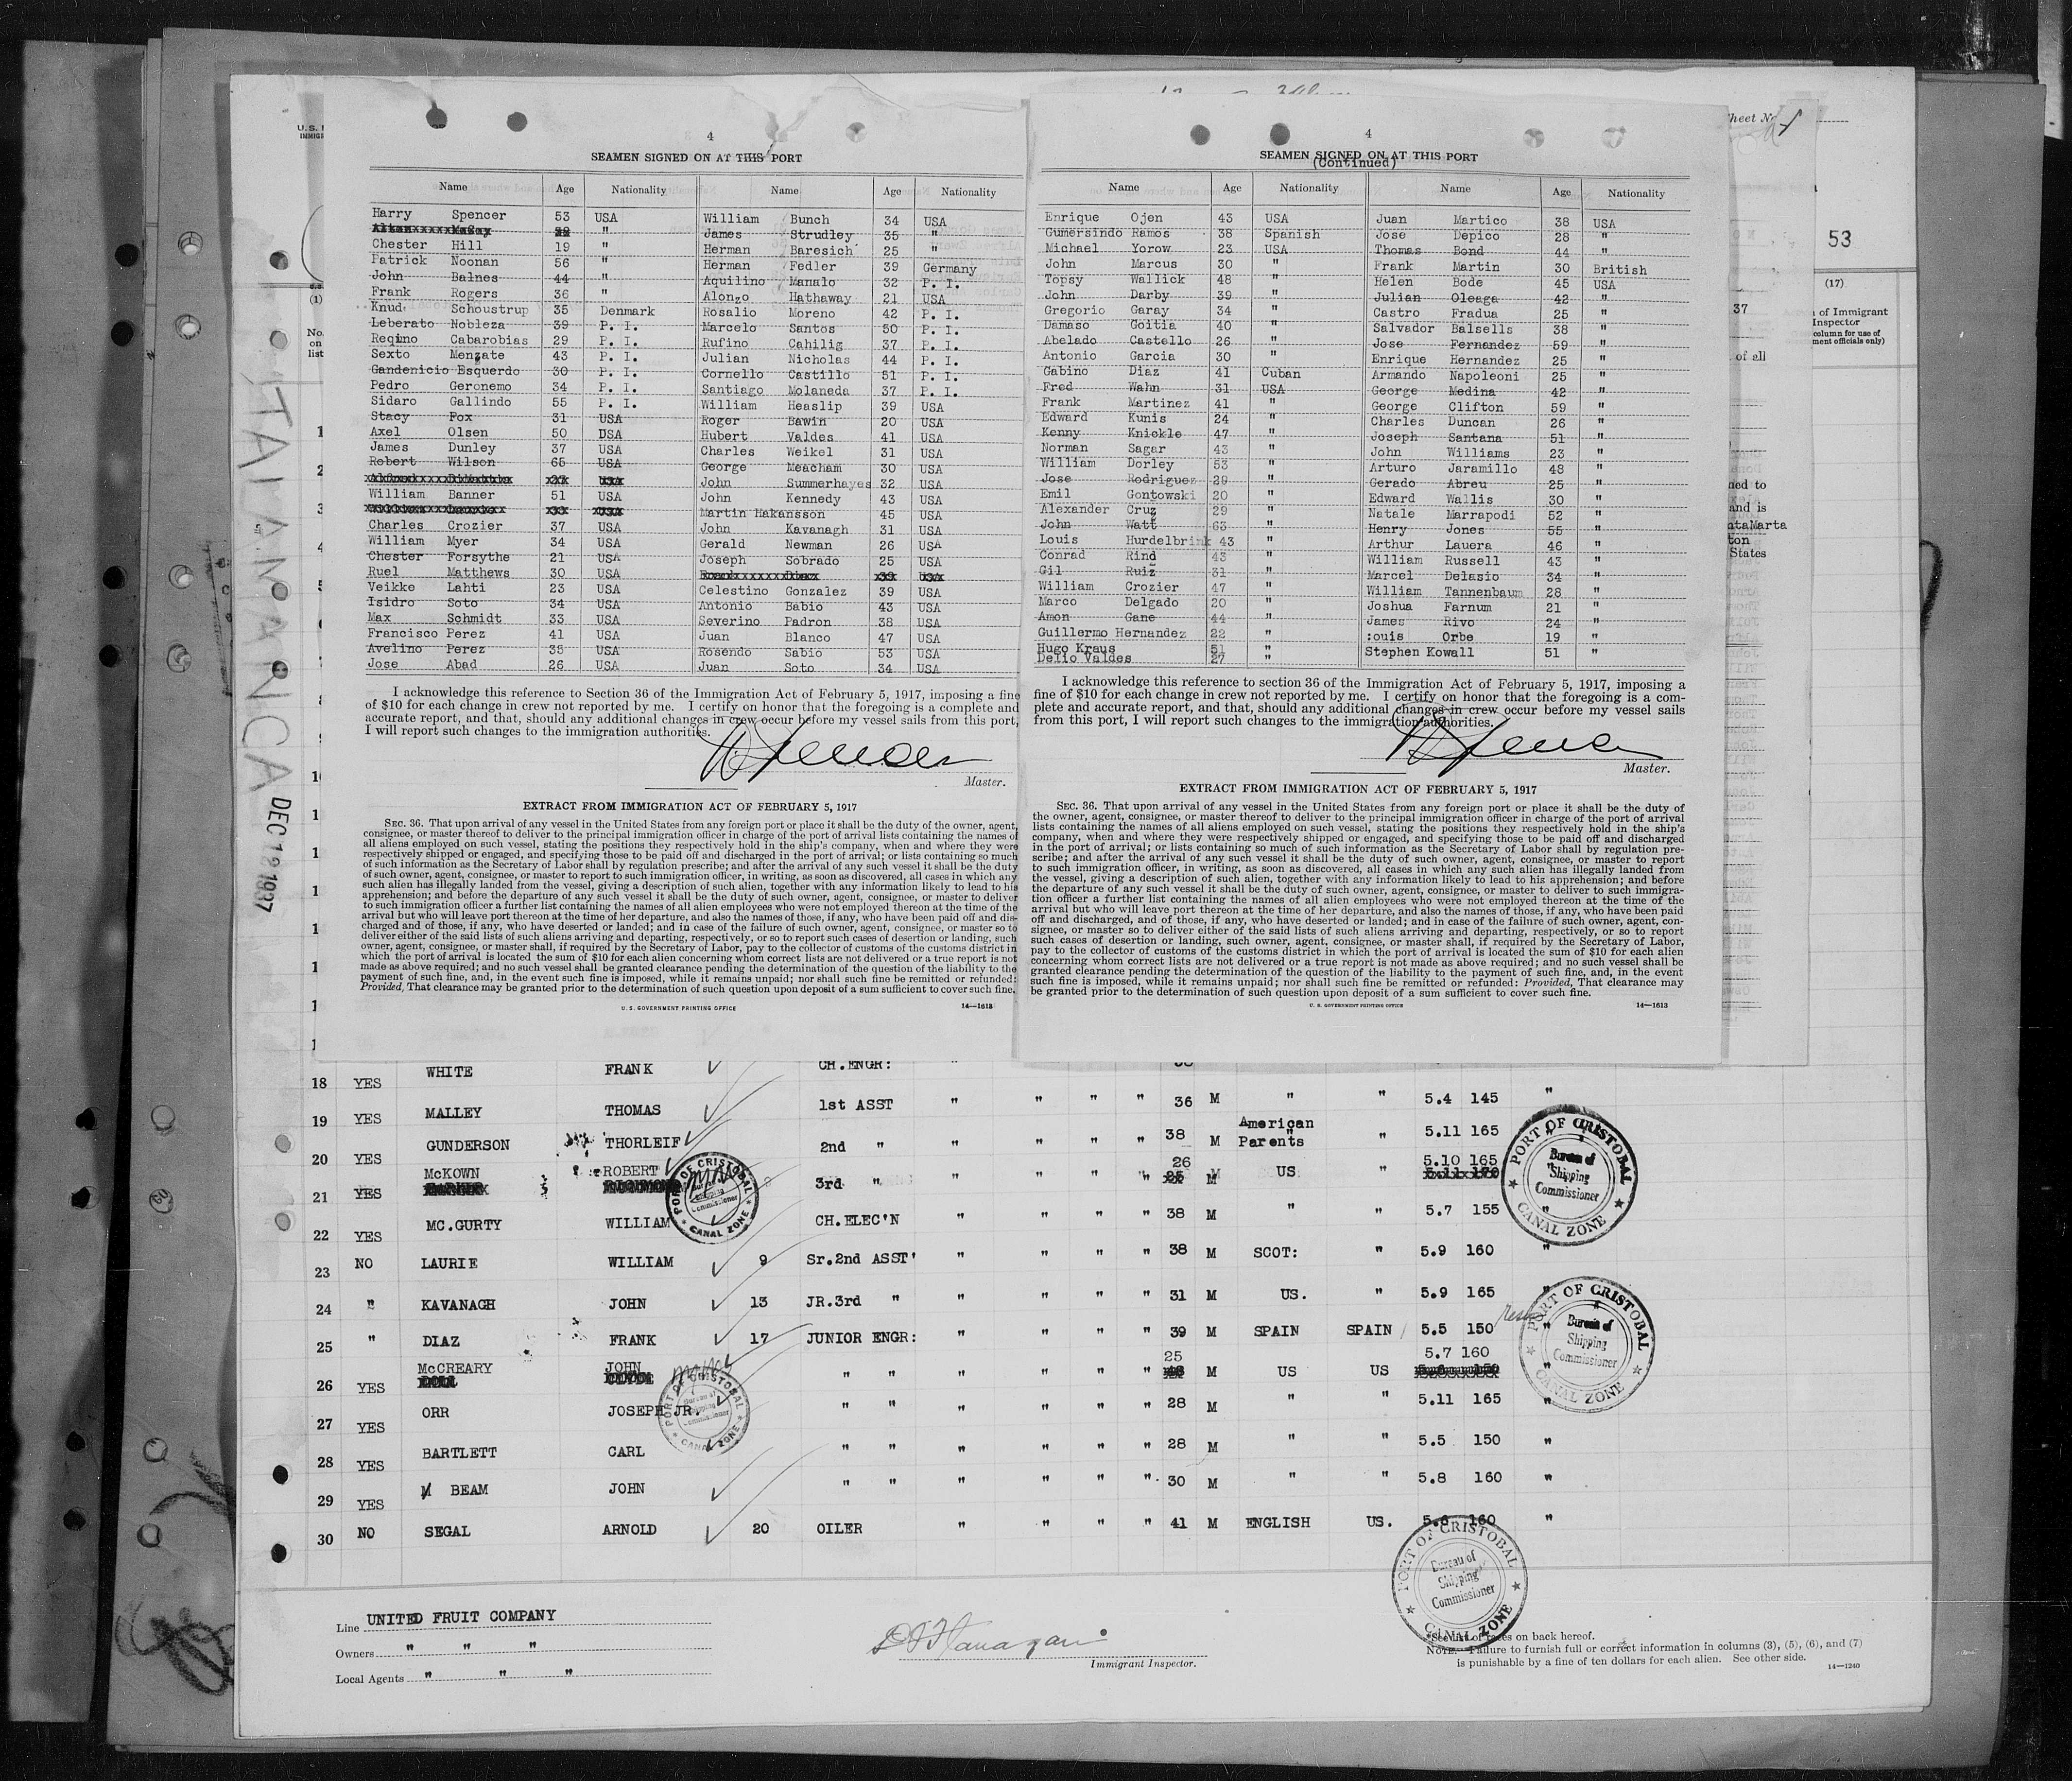 Sheet No.
U. S.
53
(17)
37
of Immigrant
Inspector
column for use of
ment officials only)
of all
ned to
and is
ntaMarta
ton
States
TALAMANCA
DEC 19 1937
(1)
No.
on
list
4
SEAMEN SIGNED ON AT THIS PORT
Name Age Nationality Name Age Nationality
Harry Spencer 53 USA William Bunch 34 USA
" James Strudley 35 "
Chester Hill 19 " Herman Baresich 25 "
Patrick Noonan 56 " Herman Fedler 39 Germany
John Balnes 44 " Aquilino Manalo 32 P. I.
Frank Rogers 36 " Alonzo Hathaway 21 USA
Knud Schoustrup 35 Denmark Rosalio Moreno 42 P. I.
Leberato Nobleza 39 P. I. Marcelo Santos 50 P. I.
Reqino Cabarobias 29 P. I. Rufino Cahilig 37 P. I.
Sexto Menzate 43 P. I. Julian Nicholas 44 P. I.
Gandenicio Esquerdo 30 P. I. Cornello Castillo 51 P. I.
Pedro Geronemo 34 P. I. Santiago Molaneda 37 P. I.
Sidaro Gallindo 55 P. I. William Heaslip 39 USA
Stacy Fox 31 USA Roger Bawin 20 USA
Axel Olsen 50 USA Hubert Valdes 41 USA
James Dunley 37 USA Charles Weikel 31 USA
Robert Wilson 65 USA George Meacham 30 USA
John Summerhayes 32 USA
William Banner 51 USA John Kennedy 43 USA
Martin Hakansson 45 USA
Charles Crozier 37 USA John Kavanagh 31 USA
William Myer 34 USA Gerald Newman 26 USA
Chester Forsythe 21 USA Joseph Sobrado 25 USA
Ruel Matthews 30 USA
Veikke Lahti 23 USA Celestino Gonzalez 39 USA
Isidro Soto 34 USA Antonio Babio 43 USA
Max Schmidt 33 USA Severino Padron 38 USA
Francisco Perez 41 USA Juan Blanco 47 USA
Avelino Perez 35 USA Rosendo Sabio 53 USA
Jose Abad 26 USA Juan Soto 34 USA
I acknowledge this reference to Section 36 of the Immigration Act of February 5, 1917, imposing a fine
of $10 for each change in crew not reported by me. I certify on honor that the foregoing is a complete and
accurate report, and that, should any additional changes in crew occur before my vessel sails from this port,
I will report such changes to the immigration authorities.
H Spencer
Master.
EXTRACT FROM IMMIGRATION ACT OF FEBRUARY 5, 1917
SEC. 36. That upon arrival of any vessel in the United States from any foreign port or place it shall be the duty of the owner, agent,
consignee, or master thereof to deliver to the principal immigration officer in charge of the port of arrival lists containing the names of
all aliens employed on such vessel, stating the positions they respectively hold in the ship's company, when and where they were
respectively shipped or engaged, and specifying those to be paid off and discharged in the port of arrival; or lists containing so much
of such information as the Secretary of Labor shall by regulation prescribe; and after the arrival of any such vessel it shall be the duty
of such owner, agent, consignee, or master to report to such immigration officer, in writing, as soon as discovered, all cases in which any
such alien has illegally landed from the vessel, giving a description of such alien, together with any information likely to lead to his
apprehension; and before the departure of any such vessel it shall be the duty of such owner, agent, consignee, or master to deliver
to such immigration officer a further list containing the names of all alien employees who were not employed thereon at the time of the
arrival but who will leave port thereon at the time of her departure, and also the names of those, if any, who have been paid off and dis-
charged and of those, if any, who have deserted or landed; and in case of the failure of such owner, agent, consignee, or master so to
deliver either of the said lists of such aliens arriving and departing, respectively, or so to report such cases of desertion or landing, such
owner, agent, consignee, or master shall, if required by the Secretary of Labor, pay to the collector of customs of the customs district in
which the port of arrival is located the sum of $10 for each alien concerning whom correct lists are not delivered or a true report is not
made as above required; and no such vessel shall be granted clearance pending the determination of the question of the liability to the
payment of such fine, and, in the event such fine is imposed, while it remains unpaid; nor shall such fine be remitted or refunded:
Provided, That clearance may be granted prior to the determination of such question upon deposit of a sum sufficient to cover such fine.
U. S. GOVERNMENT PRINTING OFFICE 14—1613
4
SEAMEN SIGNED ON AT THIS PORT
(Continued)
Name Age Nationality Name Age Nationality
Enrique Ojen 43 USA Juan Martico 38 USA
Gumersindo Ramos 38 Spanish Jose Depico 28 "
Michael Yorow 23 USA Thomas Bond 44 "
John Marcus 30 " Frank Martin 30 British
Topsy Wallick 48 " Helen Bode 45 USA
John Darby 39 " Julian Oleaga 42 "
Gregorio Garay 34 " Castro Fradua 25 "
Damaso Goitia 40 " Salvador Balsells 38 "
Abelado Castello 26 " Jose Fernandez 59 "
Antonio Garcia 30 " Enrique Hernandez 25 "
Gabino Diaz 41 Cuban Armando Napoleoni 25 "
Fred Wahn 31 USA George Medina 42 "
Frank Martinez 41 " George Clifton 59 "
Edward Kunis 24 " Charles Duncan 26 "
Kenny Knickle 47 " Joseph Santana 51 "
Norman Sagar 43 " John Williams 23 "
William Dorley 53 " Arturo Jaramillo 48 "
Jose Rodriguez 29 " Gerado Abreu 25 "
Emil Gontowski 20 " Edward Wallis 30 "
Alexander Cruz 29 " Natale Marrapodi 52 "
John Watt 63 " Henry Jones 55 "
Louis Hurdelbrink 43 " Arthur Lauera 46 "
Conrad Rind 43 " William Russell 43 "
Gil Ruiz 31 " Marcel Delasio 34 "
William Crozier 47 " William Tannenbaum 28 "
Marco Delgado 20 " Joshua Farnum 21 "
Amon Gane 44 " James Rivo 24 "
Guillermo Hernandez 22 " :ouis Orbe 19 "
Hugo Kraus 51 " Stephen Kowall 51 "
Delio Valdes 27 "
I acknowledge this reference to section 36 of the Immigration Act of February 5, 1917, imposing a
fine of $10 for each change in crew not reported by me. I certify on honor that the foregoing is a com-
plete and accurate report, and that, should any additional changes in crew occur before my vessel sails
from this port, I will report such changes to the immigration authorities.
H Spencer
Master.
EXTRACT FROM IMMIGRATION ACT OF FEBRUARY 5, 1917
SEC. 36. That upon arrival of any vessel in the United States from any foreign port or place it shall be the duty of
the owner, agent, consignee, or master thereof to deliver to the principal immigration officer in charge of the port of arrival
lists containing the names of all aliens employed on such vessel, stating the positions they respectively hold in the ship's
company, when and where they were respectively shipped or engaged, and specifying those to be paid off and discharged
in the port of arrival; or lists containing so much of such information as the Secretary of Labor shall by regulation pre-
scribe; and after the arrival of any such vessel it shall be the duty of such owner, agent, consignee, or master to report
to such immigration officer, in writing, as soon as discovered, all cases in which any such alien has illegally landed from
the vessel, giving a description of such alien, together with any information likely to lead to his apprehension; and before
the departure of any such vessel it shall be the duty of such owner, agent, consignee, or master to deliver to such immigra-
tion officer a further list containing the names of all alien employees who were not employed thereon at the time of the
arrival but who will leave port thereon at the time of her departure, and also the names of those, if any, who have been paid
off and discharged, and of those, if any, who have deserted or landed; and in case of the failure of such owner, agent, con-
signee, or master so to deliver either of the said lists of such aliens arriving and departing, respectively, or so to report
such cases of desertion or landing, such owner, agent, consignee, or master shall, if required by the Secretary of Labor,
pay to the collector of customs of the customs district in which the port of arrival is located the sum of $10 for each alien
concerning whom correct lists are not delivered or a true report is not made as above required; and no such vessel shall be
granted clearance pending the determination of the question of the liability to the payment of such fine, and, in the event
such fine is imposed, while it remains unpaid; nor shall such fine be remitted or refunded: Provided, That clearance may
be granted prior to the determination of such question upon deposit of a sum sufficient to cover such fine.
U. S. GOVERNMENT PRINTING OFFICE 14—1613
18 YES WHITE FRANK CH.ENGR: "
19 YES MALLEY THOMAS 1st ASST " " " " 36 M " " 5.4 145 "
20 YES GUNDERSON THORLEIF 2nd " " " " " 38 M American Parents " 5.11 165
21 YES McKOWN ROBERT 3rd " " " " " 26 M US " 5.10 165
22 YES MC.GURTY WILLIAM CH.ELEC'N " " " " 38 M " " 5.7 155 "
23 NO LAURIE WILLIAM 9 Sr.2nd ASST' " " " " 38 M SCOT: " 5.9 160 "
24 " KAVANAGH JOHN 13 JR.3rd " " " " " 31 M US. " 5.9 165 "
25 " DIAZ FRANK 17 JUNIOR ENGR: " " " " 39 M SPAIN SPAIN 5.5 150 "
26 YES McCREARY JOHN " " " " " " 25 M US US 5.7 160 "
27 YES ORR JOSEPH JR. " " " " " " 28 M " " 5.11 165 "
28 YES BARTLETT CARL " " " " " " 28 M " " 5.5 150 "
29 YES M BEAM JOHN " " " " " " 30 M " " 5.8 160 "
30 NO SEGAL ARNOLD 20 OILER " " " " 41 M ENGLISH US. 5.6 160 "
PORT OF CRISTOBAL
Bureau of
Shipping
Commissioner
CANAL ZONE
PORT OF CRISTOBAL
Bureau of
Shipping
Commissioner
CANAL ZONE
PORT OF CRISTOBAL
Bureau of
Shipping
Commissioner
CANAL ZONE
PORT OF CRISTOBAL
Bureau of
Shipping
Commissioner
CANAL ZONE
PORT OF CRISTOBAL
Bureau of
Shipping
Commissioner
CANAL ZONE
Line UNITED FRUIT COMPANY
Owners " " "
Local Agents " " "
Immigrant Inspector.
*See list of races on back hereof.
NOTE.—Failure to furnish full or correct information in columns (3), (5), (6), and (7)
is punishable by a fine of ten dollars for each alien. See other side.
14—1240